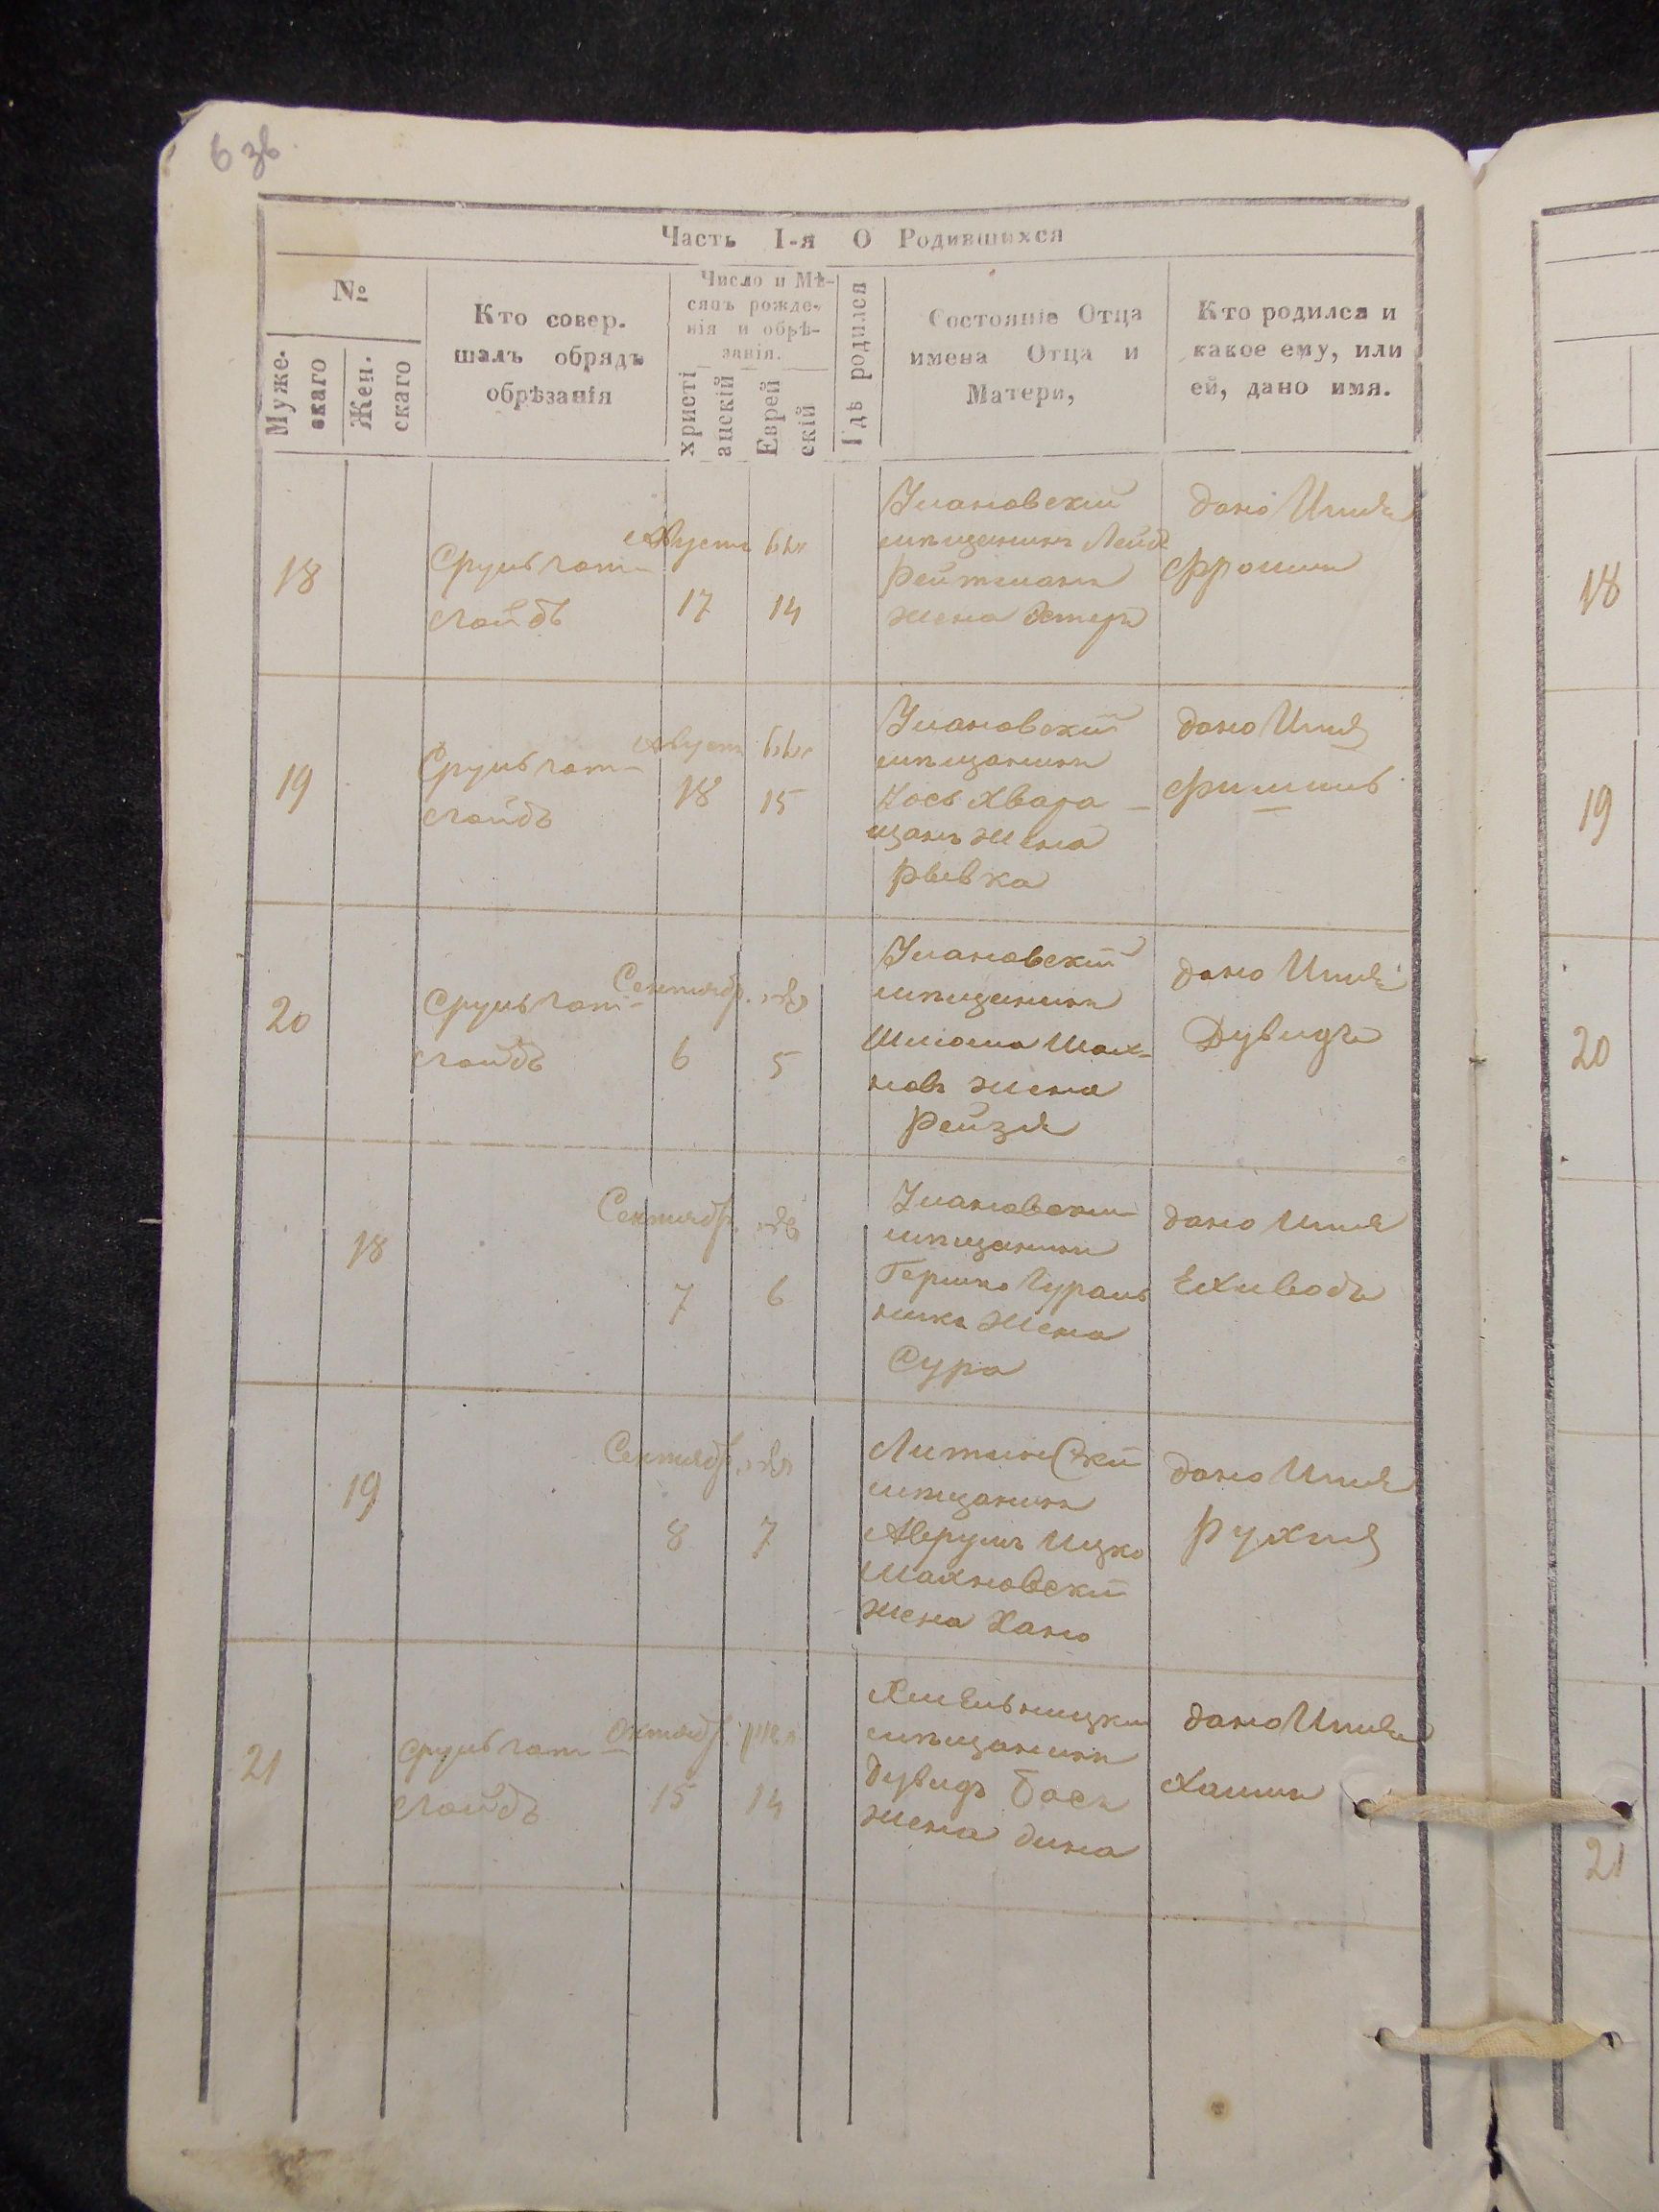 6 зв
Часть I-я О Родившихся
№
Муже-
скаго
Жен.
скаго
Кто совер-
шалъ обрядъ
обрѣзанія
Число и Мѣ-
сяцъ рожде-
нія и обрѣ-
занія.
христі
анскій
Еврей
скій
Гдѣ родился
Состояніе Отца
имена Отца и
Матери,
Кто родился и
какое ему, или
ей, дано имя.
18
Сруль Гот-
лойбъ
Августа
17
14
Улановскій
мѣщанинъ Лейб
Рейтманъ
жена Эстеръ
дано Имя
Фроимъ
18
19
Сруль Гот-
лойбъ
Август
18
15
Улановскій
мѣщанинъ
Иось Хвара-
щанъ жена
Рывка
дано Имя
19
20
Сруль Гот-
лойбъ
Сентябр.
6
5
Улановскій
мѣщанинъ
Шлиома Шах-
новъ жена
Рейзя
дано Имя
Дувидъ
20
18
Сентябр.
7
6
Улановскій
мѣщанинъ
Гершко Гураль
никъ жена
Сура
дано Имя
19
Сентябр.
8
7
Литинскій
мѣщанинъ
Аврумъ Ицко
Махновскій
жена Хана
дано Имя
Рухля
21
Сруль Гот-
лойбъ
Октябр.
15
14
Хмельницкій
мѣщанинъ
Дувидъ Босъ
жена Дина
дано Имя
Хаимъ
21